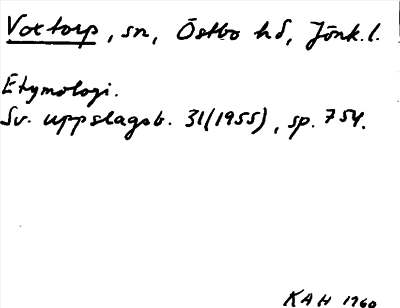 Voxtorp, sn, Östbo hd, Jönk.l.
Etymologi.
Sv. uppslagsb. 31(1955), sp. 754.
KAH 1960